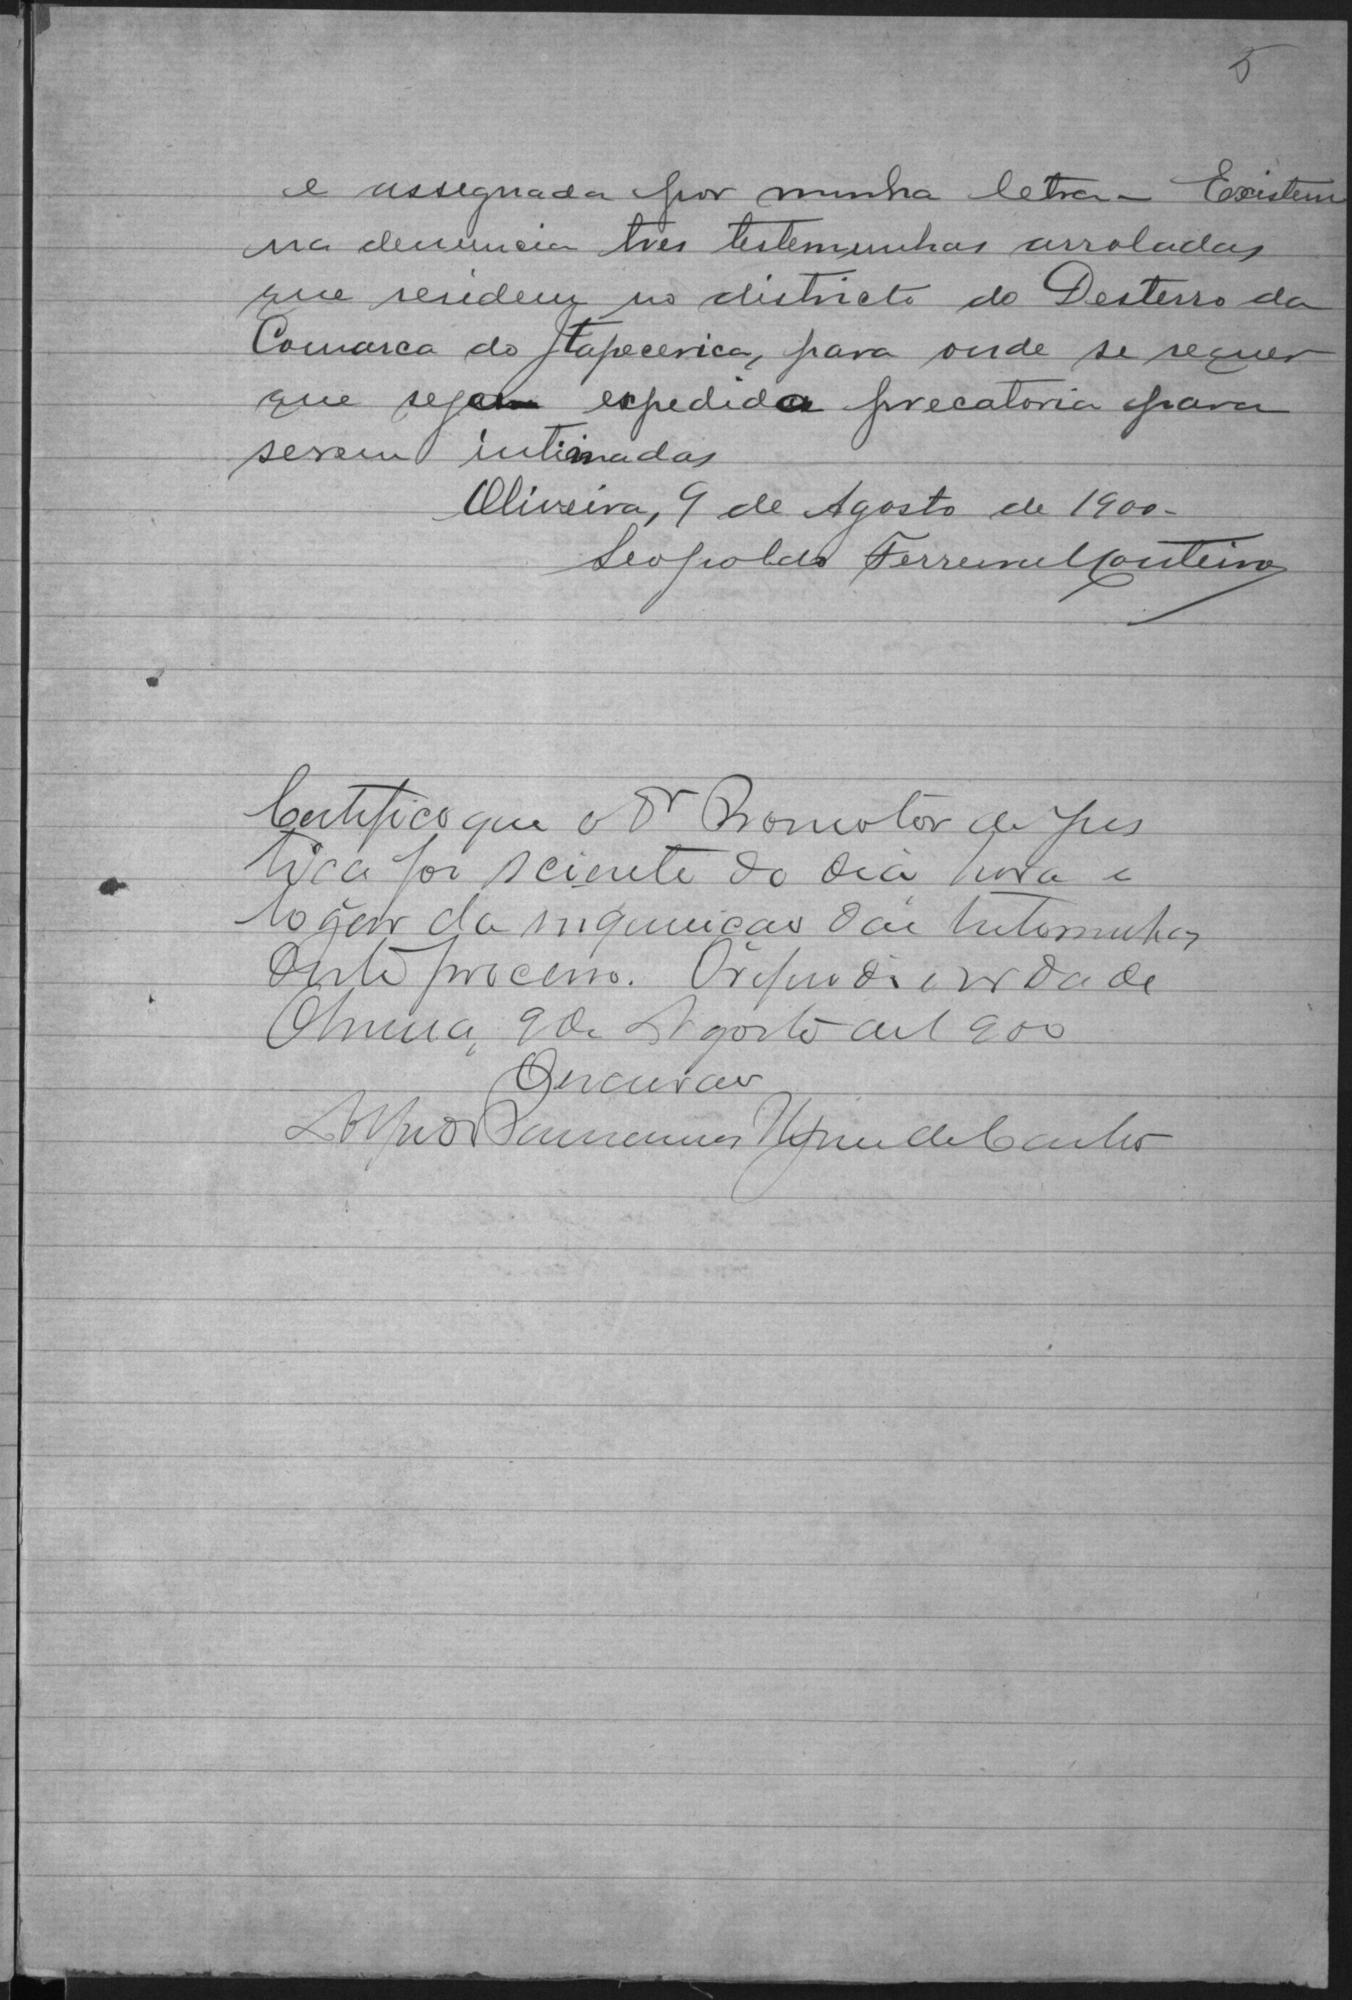 5
e assegnada por minha letra - Existem
na denuncia tres testemunhas arroladas
que residem no districto do Desterro da
Comarca do Itapecerica, para onde se requer
que seja expedida precatoria para
serem intimadas
Oliveira, 9 de Agosto de 1900 -
Leopoldo Ferreira Monteiro
Certifico que o Dr Promotor de Jus
tiça foi sciente do dia hora e
logar da inquirição das testemunhas
deste processo. O referido é verdade
Oliveira, 9 de Agosto de 1900
O escrivão
de Castro